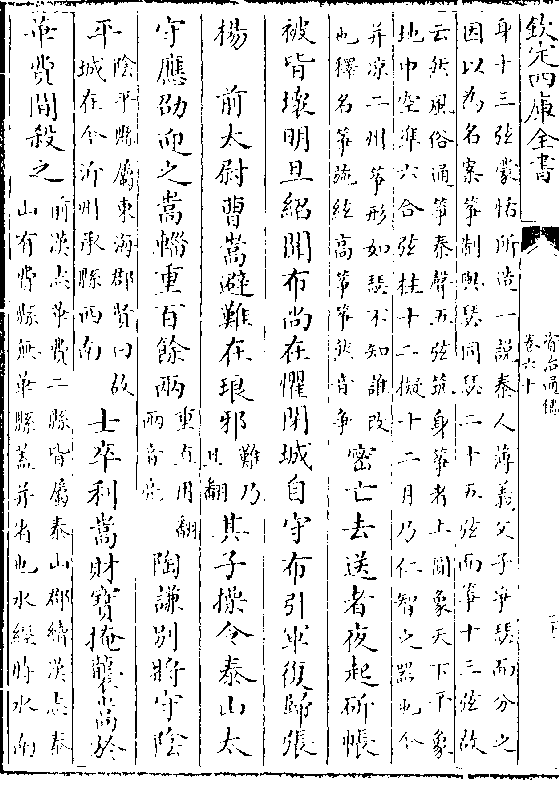 欽定四庫全書
資治通鑑
卷六十
身十三弦蒙恬所造一説秦人薄義父子爭瑟而分之
因以為名案箏制與瑟同瑟二十五弦而箏十三弦故
云然風俗通箏秦聲五弦筑身箏者上圓象天下平象
地中空準六合弦柱十二擬十二月乃仁智之器也今
并凉二州箏形如瑟不知誰改
也釋名箏施絃高箏箏然音爭
密亡去送者夜起斫帳
被皆壞明旦紹聞布尚在懼閉城自守布引軍復歸張
楊　前太尉曹嵩避難在琅邪
難乃
旦翻
其子操令泰山太
守應劭迎之嵩輜重百餘兩
重直用翻
兩音亮
陶謙别將守陰
平
陰平縣屬東海郡賢曰故
城在今沂州承縣西南
士卒利嵩財寳掩襲嵩於
華費間殺之
前漢志華費二縣皆屬泰山郡續漢志泰
山有費縣無華縣葢并省也水經時水南